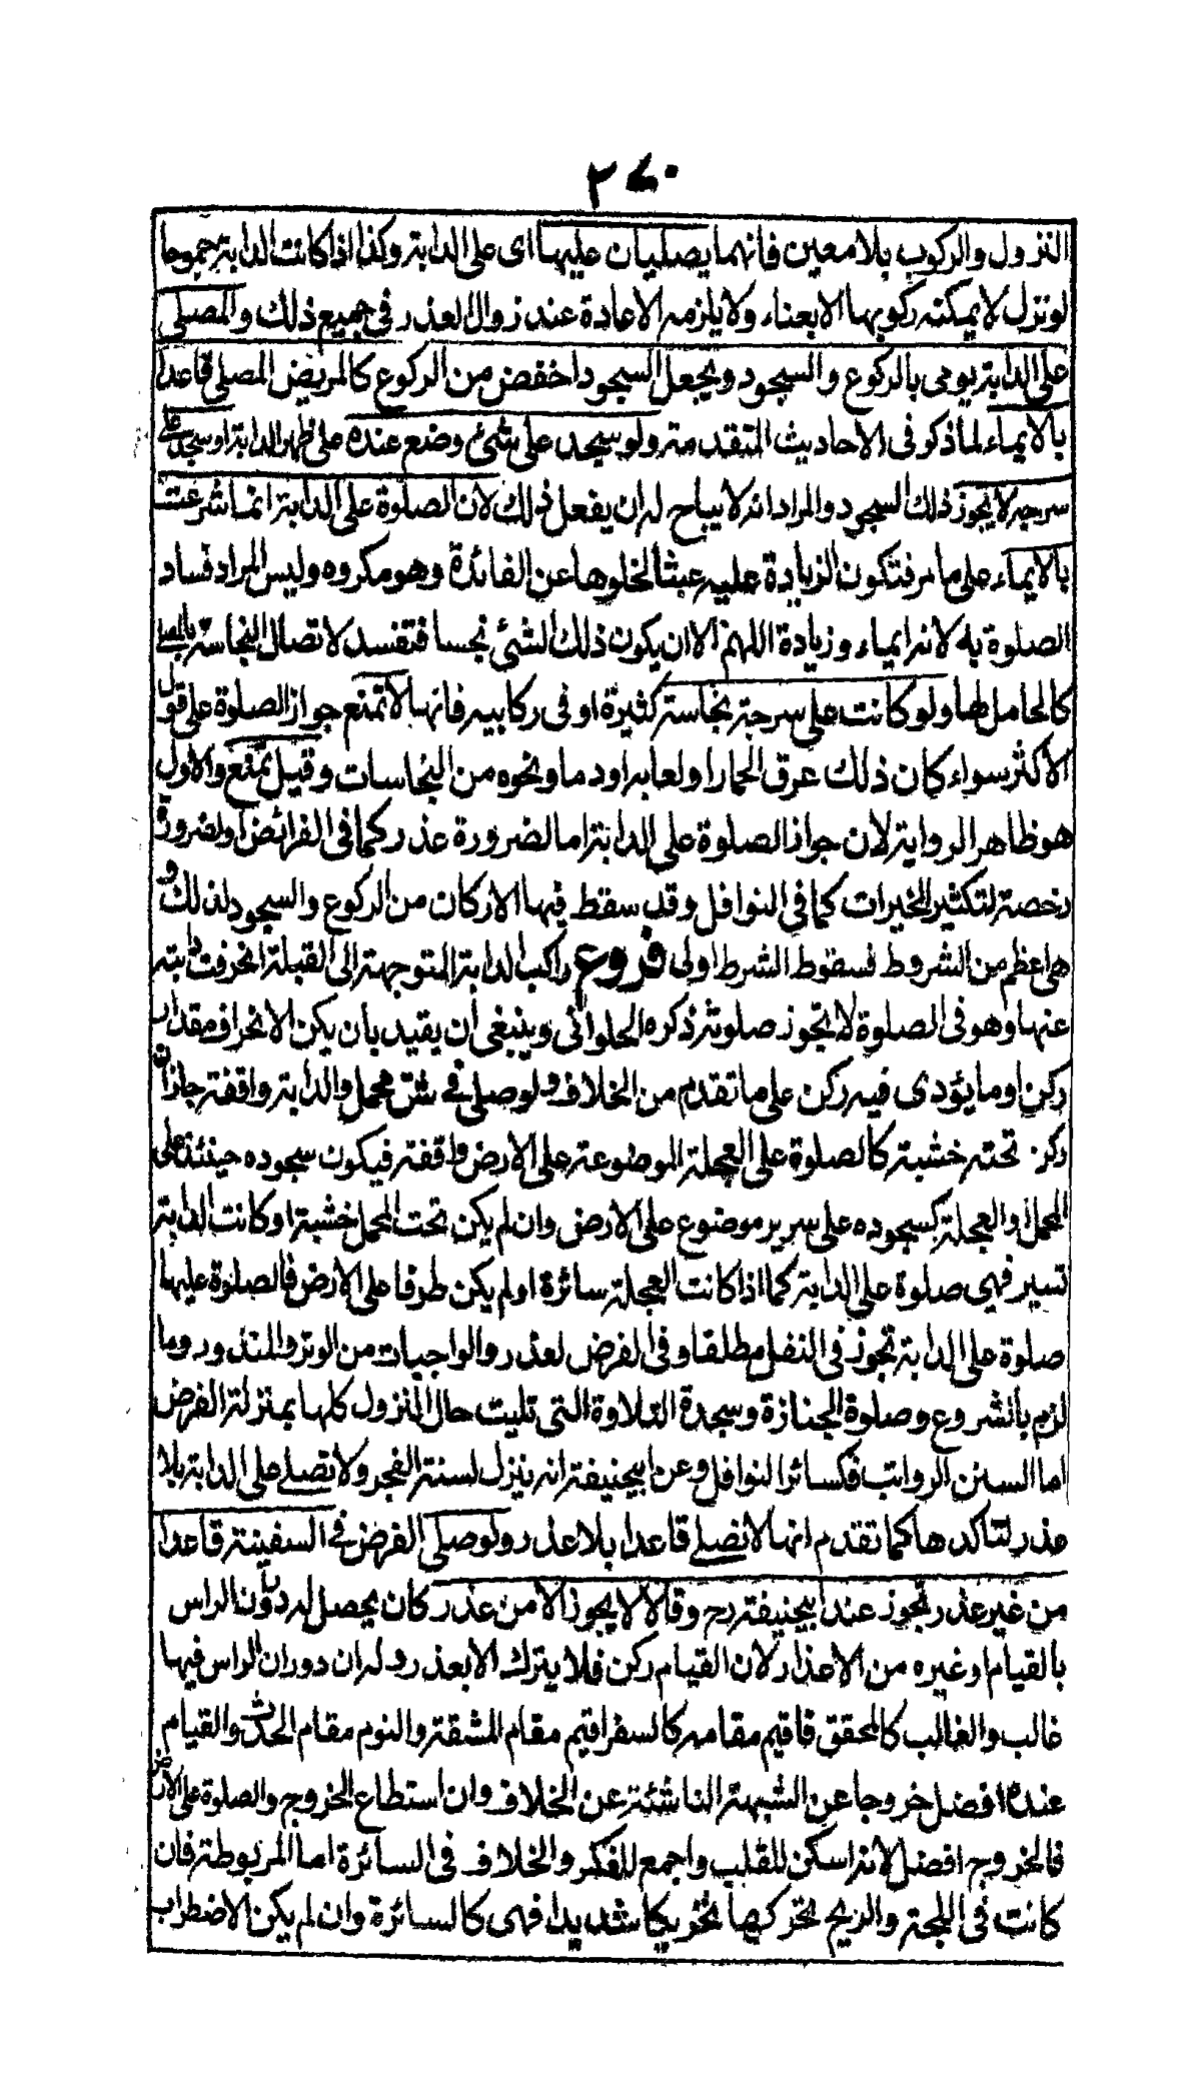 ٢٧٠
النزول والركوب بلا معين فانهما يصليان عليها اى على الدابة وكذا اذا كانت الدابة جموحا
لو نزل لا يمكنه ركوبها الا بعناء ولا يلزمه الاعادة عند زوال العذر فى جميع ذلك والمصلى
على الدابة يومى بالركوع والسجود ويجعل السجود اخفض من الركوع كالمريض المصلى قاعدا
بالايماء لما ذكر فى الاحاديث المتقدمة ولو سجد على شئ وضع عنده على ظهر الدابة او سجد على
سرجه لا يجوز ذلك السجود والمراد انه لا يباح له ان يفعل ذلك لان الصلوة على الدابة انما شرعت
بالايماء على ما مر فتكون الزيادة عليه عبثا لخلوها عن الفائدة وهو مكروه وليس المراد فساد
الصلوة به لانه ايماء وزيادة اللهم الا ان يكون ذلك الشئ نجسا فتفسد لاتصال النجاسة بالمصلى
كالحامل لها ولو كانت على سرجه نجاسة كثيرة او فى ركابيه فانها لا تمنع جواز الصلوة على قول
الاكثر سواء كان ذلك عرق الحمار او لعابه او دما ونحوه من النجاسات وقيل تمنع والاول
هو ظاهر الرواية لان جواز الصلوة على الدابة اما لضرورة عذر كما فى الفرائض او لضرورة
رخصة لتكثير الخيرات كما فى النوافل وقد سقط فيها الاركان من الركوع والسجود لذلك و
هى اعظم من الشروط فسقوط الشرط اولى فروع راكب الدابة المتوجهة الى القبلة انحرفت دابته
عنها وهو فى الصلوة لا تجوز صلوته ذكره الحلوانى وينبغى ان يقيد بان يكن الانحراف مقدار
ركن او ما يؤدى فيه ركن على ما تقدم من الخلاف ولو صلى فى شق محمل والدابة واقفة جاز ان
ركز تحته خشبة كالصلوة على العجلة الموضوعة على الارض واقفة فيكون سجوده حينئذ على
المحمل او العجلة كسجوده على سرير موضوع على الارض وان لم يكن تحت المحمل خشبة او كانت الدابة
تسير فهى صلوة على الدابة كما اذا كانت العجلة سائرة او لم يكن طرفا على الارض فالصلوة عليها
صلوة على الدابة تجوز فى النفل مطلقا وفى الفرض لعذر والواجبات من الوتر والمنذور وما
لزم بالشروع وصلوة الجنازة وسجدة التلاوة التى تليت حال النزول كلها بمنزلة الفرض
اما السنن الرواتب فكسائر النوافل وعن ابيحنيفة انه ينزل لسنة الفجر ولا تصلى على الدابة بلا
عذر لتاكدها كما تقدم انها لا تصلى قاعدا بلا عذر ولو صلى الفرض فى السفينة قاعدا
من غير عذر تجوز عند ابيحنيفة رح وقالا لا يجوز الا من عذر كان يحصل له دوران الراس
بالقيام او غيره من الاعذار لان القيام ركن فلا يترك الا بعذر وله ان دوران الراس فيها
غالب والغالب كالمحقق فاقيم مقامه كالسفر اقيم مقام المشقة والنوم مقام الحدث والقيام
عنده افضل خروجا عن الشبهة الناشئة عن الخلاف وان استطاع الخروج والصلوة على الارض
فالخروج افضل لانه اسكن للقلب واجمع للفكر والخلاف فى السائرة اما المربوطة فان
كانت فى اللجة والريح تحركها تحريكا شديدا فهى كالسائرة وان لم يكن الاضطراب